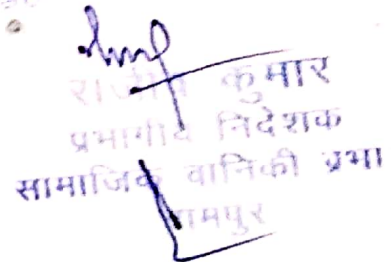 राजीव कुमार
प्रभागीय निदेशक
सामाजिक वानिकी प्रभा
रामपुर